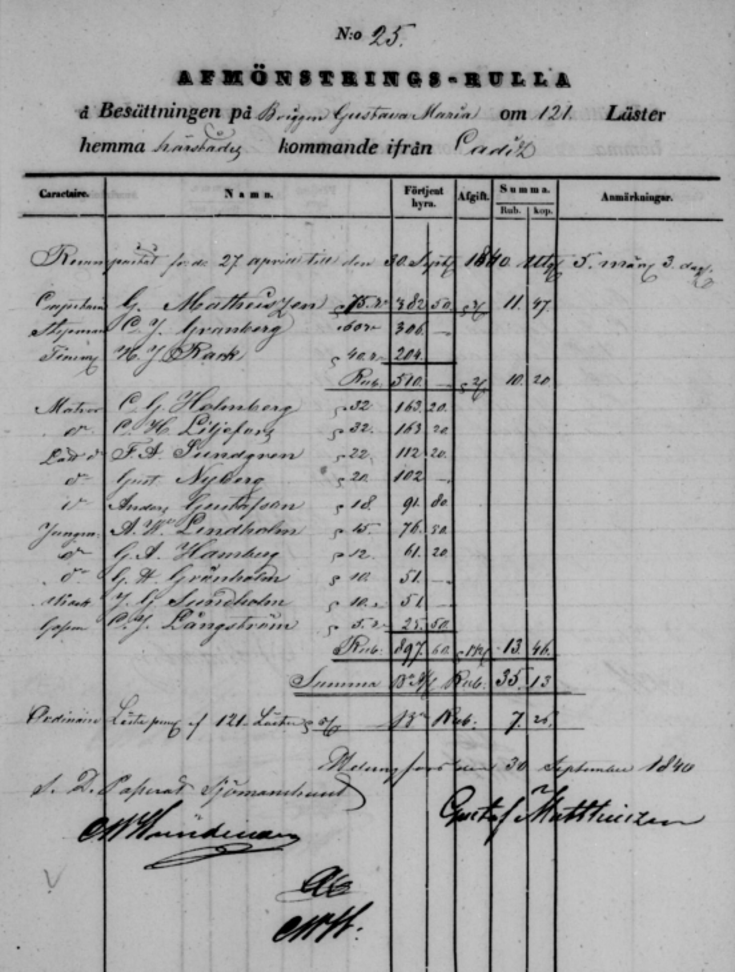 N:o 25.
AFMÖNSTRINGS-RULLA
å Besättningen på Briggen Gustava Maria om 121. Läster
hemma härstädes kommande ifrån Cadix
Caractaire. Namn. Förtjent hyra. Afgift. Summa. Anmärkningar.
Rub. kop.
från d. 27 april till den 30 Sept 1840 5. mån 3. dag.
G. Matheiszen 75. 382 50. 11. 47.
Styrman C. J. Granberg 60 306. —
Timm H. J. Rack 40. 204.
Rub. 510. — 10. 20.
Matros C. G. Holmberg 32 163. 20.
do C. H. Liljefors 32. 163 20
Lätt do F. A. Sundgren 22, 112 20.
do Gust. Nyberg 20. 102 —
do Anders Gustafson 18. 91. 80.
Jungm A. W. Lindholm 15. 76. 50.
do G. A. Hamberg 12. 61. 20
do G. H. Grönholm 10. 51. —
Kock J. G. Sundholm 10. 51 —
C. J. Långström 5. 25. 50.
Rub. 897. 60. 13. 46.
Summa Rub. 35. 13
Ordinaire af 121. Läster Rub. 7. 26.
Helsingfors den 30 September 1840
Sjömanshuset
Gustaf Mattheiszen